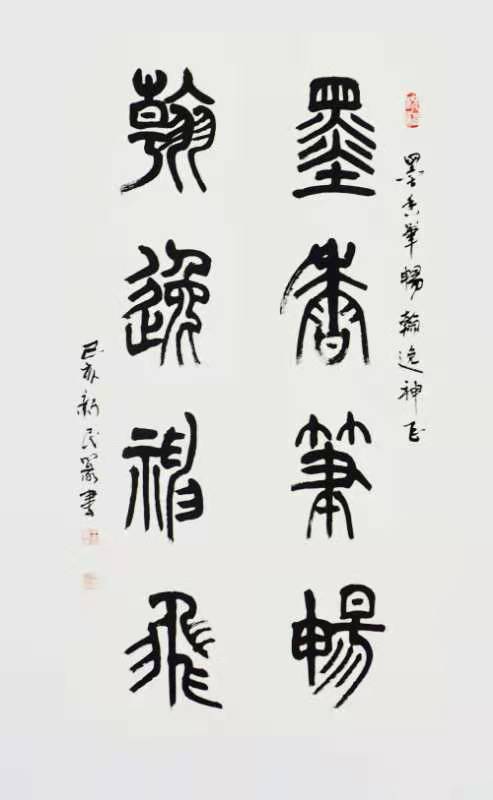 墨香筆暢
翰逸神飛
墨香筆暢翰逸神飛
己亥新民篆書